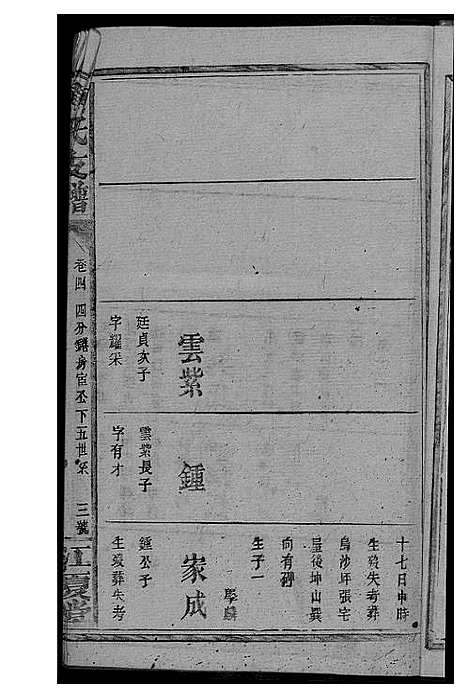 氏支譜
卷四
四分
房宦公下五世系
三號
江夏堂
雲紫
廷貞次子
字耀采
鍾
雲紫長子
字有才
十七日申時
生歿失考葬
烏沙坪張宅
屋後坤山巽
向有碑
生子一
學麟
家成
鍾公子
生歿葬失考